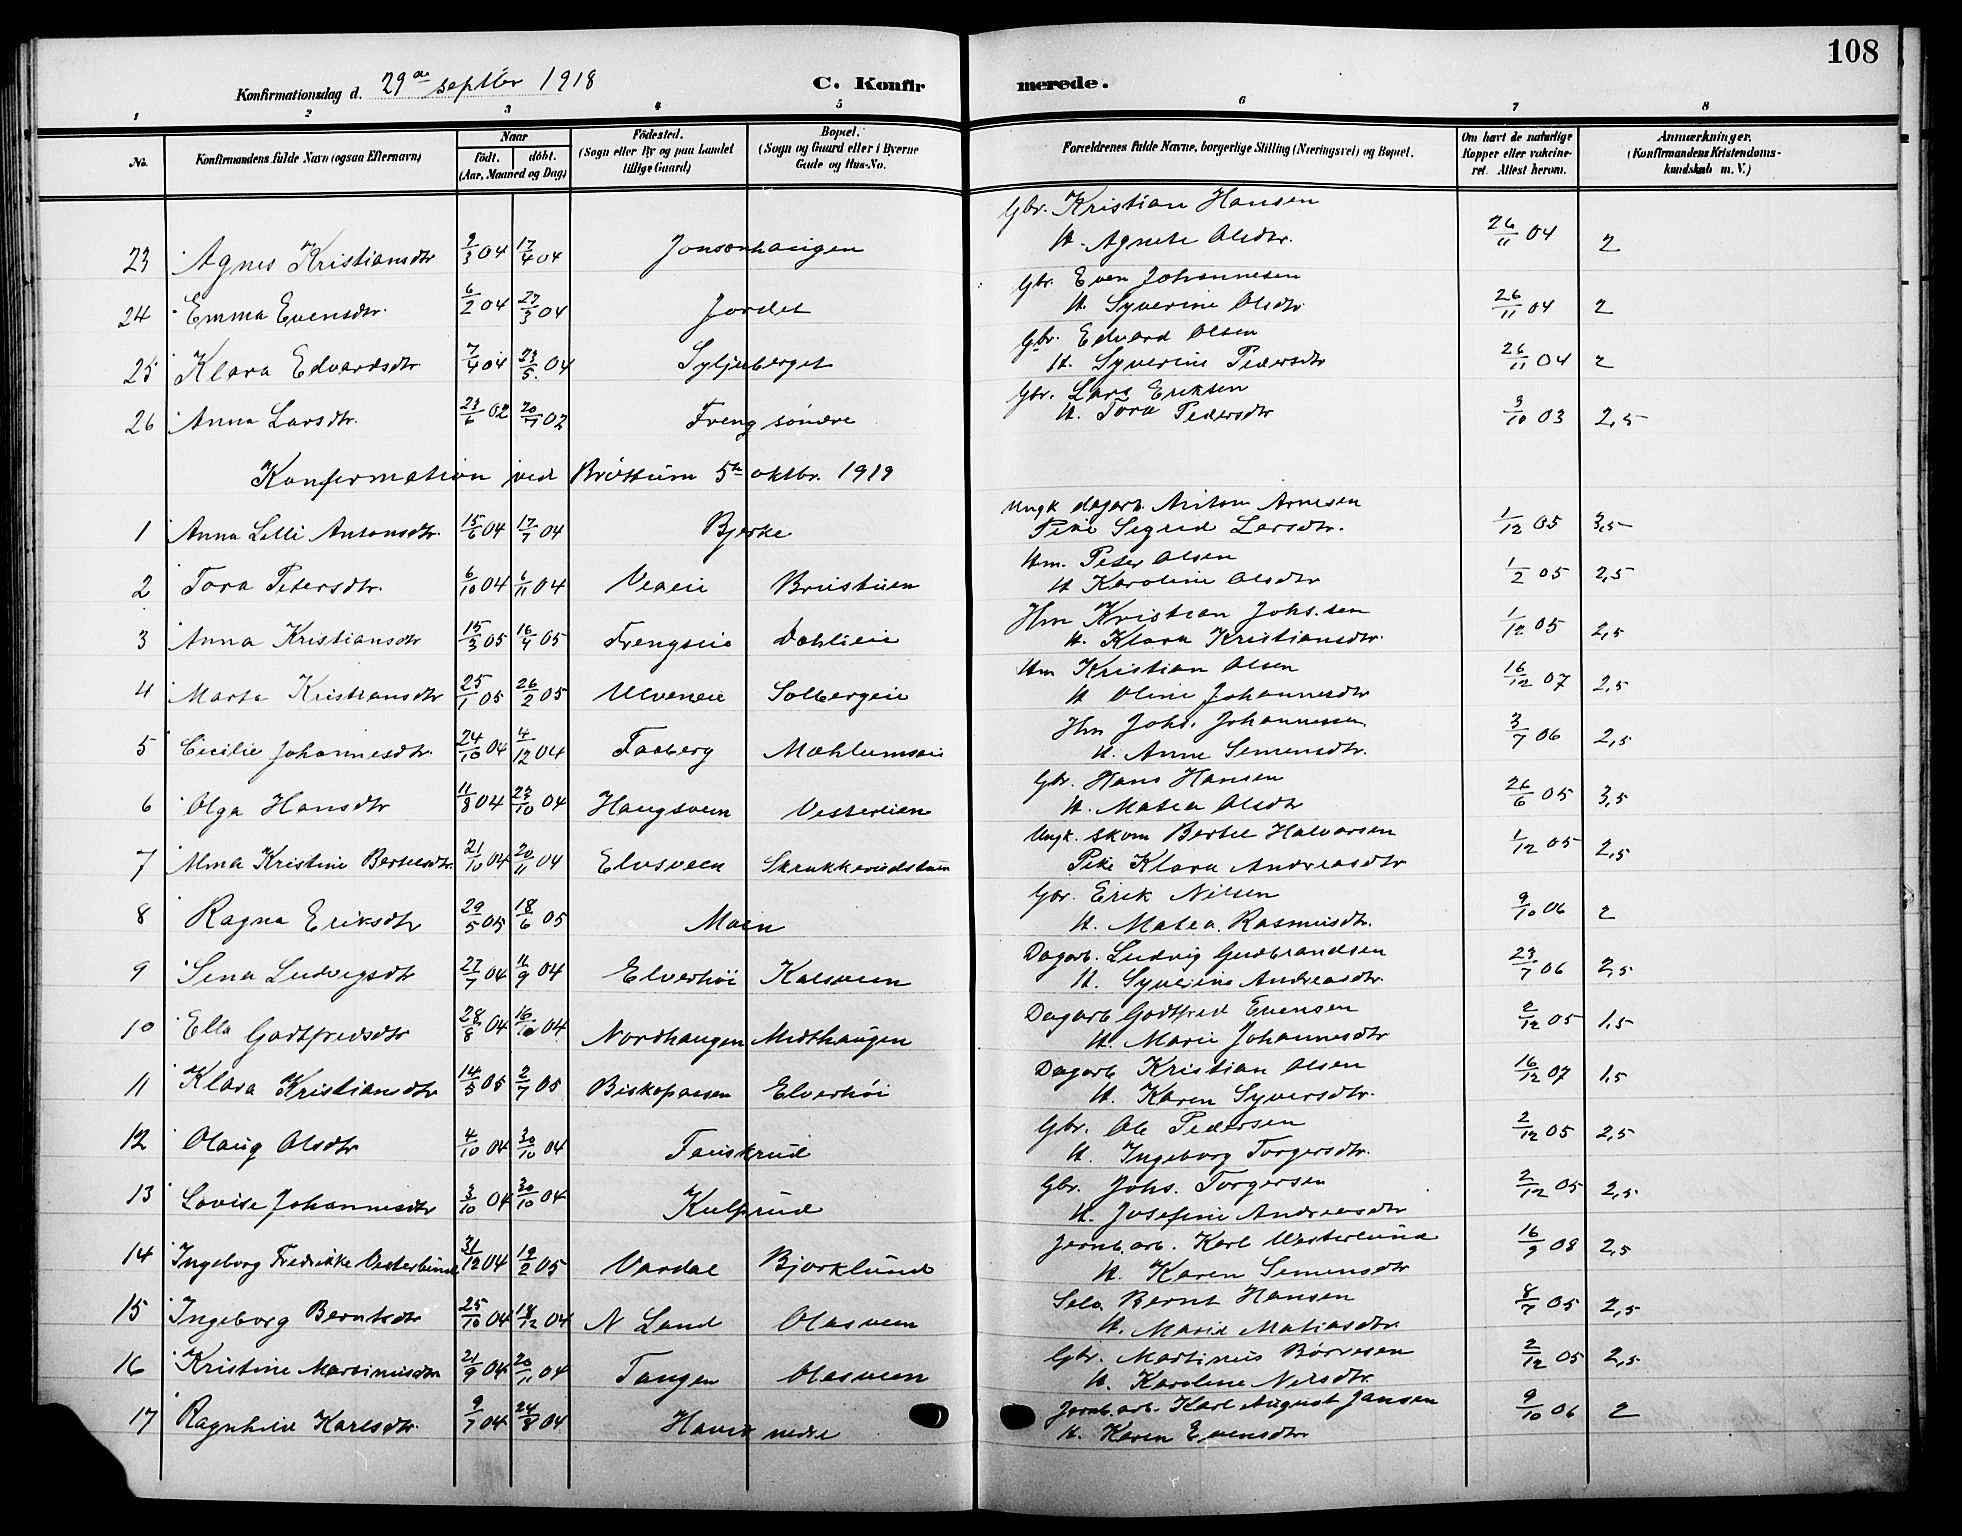 108
Konfirmationsdag d. 29de septbr 1918 C. Konfirmerede.
1 2 3 4 5 6 7 8
No. Konfirmandens fulde Navn (ogsaa Efternavn) Naar født. døbt. (Aar, Maaned og Dag) Fødested. (Sogn eller By og paa Landet tillige Gaard) Bopæl. (Sogn og Gaard eller i Byerne Gade og Hus-No. Forældrenes fulde Navne, borgerlige Stilling (Næringsvei) og Bopæl. Om havt de naturlige Kopper eller vakcineret. Attest herom. Anmærkninger. (Konfirmandens Kristendomskundskab m. V.)
Gbr. Kristian Hansen
23 Agnes Kristiansdtr 9/3 04 17/4 04 Jonsonhaugen H. Agnete Olsdtr. 26/11 04 2
Gbr. Even Johannesen
24 Emma Evensdtr. 6/2 04 27/3 04 Jordet H. Syverine Olsdtr 26/11 04 2
Gbr. Edvard Olsen
25 Klara Edvardsdtr 7/4 04 23/5 04 Syljuberget H. Syverine Pedersdtr 26/11 04 2
Gbr. Lars Eriksen
26 Anna Larsdtr. 23/6 02 20/7 02 Freng søndre H. Tora Pedersdtr 3/10 03 2,5
Konfirmation ved Brøttum 5te oktbr. 1919
Ungk dagarb. Anton Arnesen
1 Anna Lelli Antonsdtr. 15/6 04 17/7 04 Bjerke Pike Sigrid Larsdtr. 1/12 05 3,5
Hm. Peter Olsen
2 Tora Petersdtr. 6/10 04 6/11 04 Veaeie Brustuen H Karoline Olsdtr 1/2 05 2,5
Hm Kristian Johs.sen
3 Anna Kristiansdtr 15/3 05 16/4 05 Frengseie Dahlieie H. Klara Kristiansdtr. 1/12 05 2,5
Hm Kristian Olsen
4 Marta Kristiansdtr 25/1 05 26/2 05 Ulveneie Solbergeie H Oline Johannesdtr 16/12 07 2,5
Hm Johs. Johannessen
5 Cecilie Johannesdtr. 24/10 04 4/12 04 Faaberg Mæhlumseie H. Anne Simensdtr. 3/7 06 2,5
Gbr. Hans Hansen
6 Olga Hansdtr 11/8 04 23/10 04 Haugsveen Vesterlien H. Matea Olsdtr 26/6 05 3,5
Ungk. skom Bertel Halvorsen
7 Alma Kristine Bertelsdtr. 21/10 04 20/11 04 Elvsveen Skrukkerudstuen Pike Klara Andreasdtr 1/12 05 2,5
Gbr. Erik Nilsen
8 Ragna Eriksdtr 29/5 05 18/6 05 Moen H. Matea. Rasmusdtr. 9/10 06 2
Dagarb. Ludvig Gudbrandsen
9 Sena Ludvigsdtr 27/7 04 11/9 04 Elverhöi Kalsveen H. Syverine Andreasdtr. 23/7 06 2,5
Dagarb Godtfred Evensen
10 Ella Godtfredsdtr 28/8 04 16/10 04 Nordhaugen Midthaugen H. Marie Johannesdtr 2/12 05 1,5
Dagarb Kristian Olsen
11 Klara Kristiansdtr 14/5 05 2/7 05 Biskopaasen Elverhöi H. Karen Syversdtr. 16/12 07 1,5
Gbr. Ole Pedersen
12 Olaug Olsdtr 4/10 04 30/10 04 Fauskrud H. Ingeborg Torgersdtr. 2/12 05 2,5
Gbr. Johs. Torgersen
13 Lovise Johannesdtr 3/10 04 30/10 04 Kulprud H. Josefine Andreasdtr 2/12 05 2,5
Jernb.arb. Karl Westerlund
14 Ingeborg Fredrikke Vesterlund 31/12 04 19/2 05 Vardal Bjorklund H. Karen Simensdtr 16/9 08 2,5
Selv. Bernt Hansen
15 Ingeborg Berntsdtr 25/10 04 18/12 04 N Land Olasveen H. Marie Matiasdtr. 8/7 05 2,5
Gbr. Martinus Børresen
16 Kristine Martinusdtr 21/9 04 20/11 04 Tangen Olasveen H. Karoline Nilsdtr. 2/12 05 2,5
Jernb.arb. Karl August Jansen
17 Ragnhild Karlsdtr. 9/7 04 24/8 04 Havik nedre H. Karen Evensdtr. 9/10 06 2